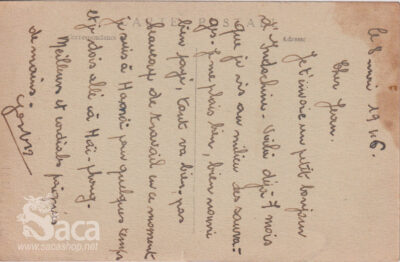 CARTE POSTALE
Correspondance
Adresse
le 8 mai 1946.
Cher Jean.
Je t'envoie un petit bonjour
d'Indochine. Voilà déjà 7 mois
que je vis au milieu des sauva-
ges. Je me plais bien, bien nourri
bien payé, tout va bien. pas
beaucoup de travail en ce moment
je suis à Hanoï pour quelques temps
et je dois allé à Haï-phong.
Meilleures et cordiales poignées
de mains.
Saca
www.sacashop.net